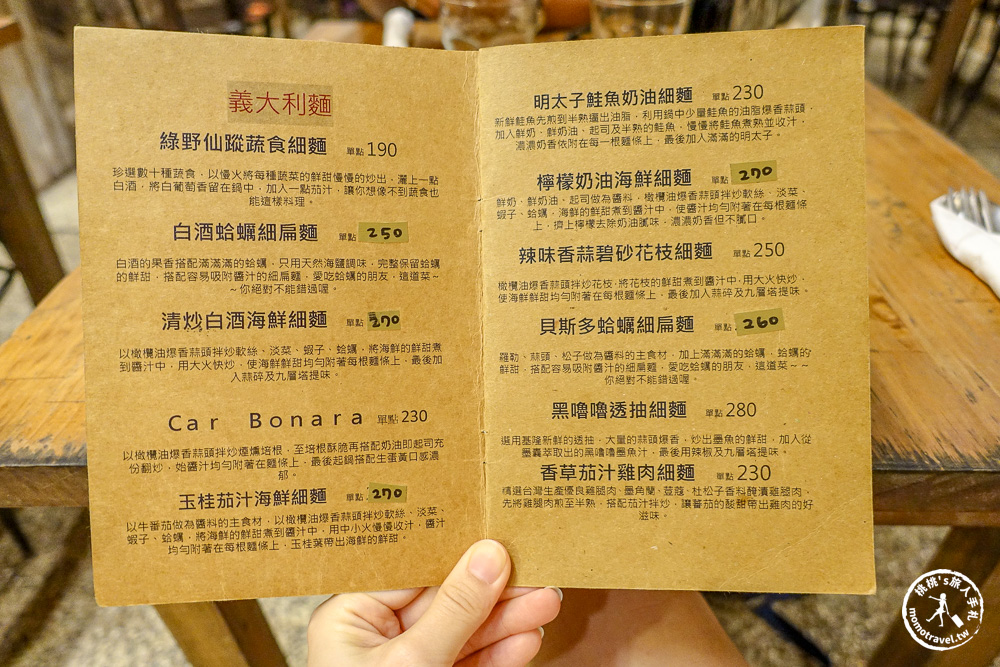 義大利麵
綠野仙蹤蔬食細麵 單點 190
珍選數十種蔬食，以慢火將每種蔬菜的鮮甜慢慢的炒出，灑上一點
白酒，將白葡萄香留在鍋中，加入一點茄汁，讓你想像不到蔬食也
能這樣料理。
白酒蛤蠣細扁麵 單點 250
白酒的果香搭配滿滿滿的蛤蠣，只用天然海鹽調味，完整保留蛤蠣
的鮮甜，搭配容易吸附醬汁的細扁麵，愛吃蛤蠣的朋友，這道菜~
~你絕對不能錯過喔。
清炒白酒海鮮細麵 單點 270
以橄欖油爆香蒜頭拌炒軟絲、淡菜、蝦子、蛤蠣，將海鮮的鮮甜煮
到醬汁中，用大火快炒，使海鮮鮮甜均勻附著在每根麵條上，最後加
入蒜碎及九層塔提味。
Car Bonara 單點 230
以橄欖油爆香蒜頭拌炒煙燻培根，至培根酥脆再搭配奶油即起司充
份翻炒，始醬汁均勻附著在麵條上，最後起鍋搭配生蛋黃口感濃
郁。
玉桂茄汁海鮮細麵 單點 270
以牛番茄做為醬料的主食材，以橄欖油爆香蒜頭拌炒軟絲、淡菜、
蝦子、蛤蠣，將海鮮的鮮甜煮到醬汁中，用中小火慢慢收汁，醬汁
均勻附著在每根麵條上，玉桂葉帶出海鮮的鮮甜。
明太子鮭魚奶油細麵 單點 230
新鮮鮭魚先煎到半熟逼出油脂，利用鍋中少量鮭魚的油脂爆香蒜頭，
加入鮮奶、鮮奶油、起司及半熟的鮭魚，慢慢將鮭魚煮熟並收汁，
濃濃奶香依附在每一根麵條上，最後加入滿滿的明太子。
檸檬奶油海鮮細麵 單點 270
鮮奶、鮮奶油、起司做為醬料，橄欖油爆香蒜頭拌炒軟絲、淡菜、
蝦子、蛤蠣，海鮮的鮮甜煮到醬汁中，使醬汁均勻附著在每根麵條
上，擠上檸檬去除奶油膩味，濃濃奶香但不膩口。
辣味香蒜碧砂花枝細麵 單點 250
橄欖油爆香蒜頭拌炒花枝，將花枝的鮮甜煮到醬汁中，用大火快炒，
使海鮮鮮甜均勻附著在每根麵條上，最後加入蒜碎及九層塔提味。
貝斯多蛤蠣細扁麵 單點 260
羅勒、蒜頭、松子做為醬料的主食材，加上滿滿滿的蛤蠣，蛤蠣的
鮮甜，搭配容易吸附醬汁的細扁麵，愛吃蛤蠣的朋友，這道菜~~
你絕對不能錯過喔。
黑嚕嚕透抽細麵 單點 280
選用基隆新鮮的透抽，大量的蒜頭爆香，炒出墨魚的鮮甜，加入從
墨囊萃取出的黑嚕嚕墨魚汁，最後用辣椒及九層塔提味。
香草茄汁雞肉細麵 單點 230
精選台灣生產優良雞腿肉，墨角蘭、荳蔻、杜松子香料醃漬雞腿肉，
先將雞腿肉煎至半熟，搭配茄汁拌炒，讓蕃茄的酸甜帶出雞肉的好
滋味。
桃桃's旅人手札
momotravel.cc